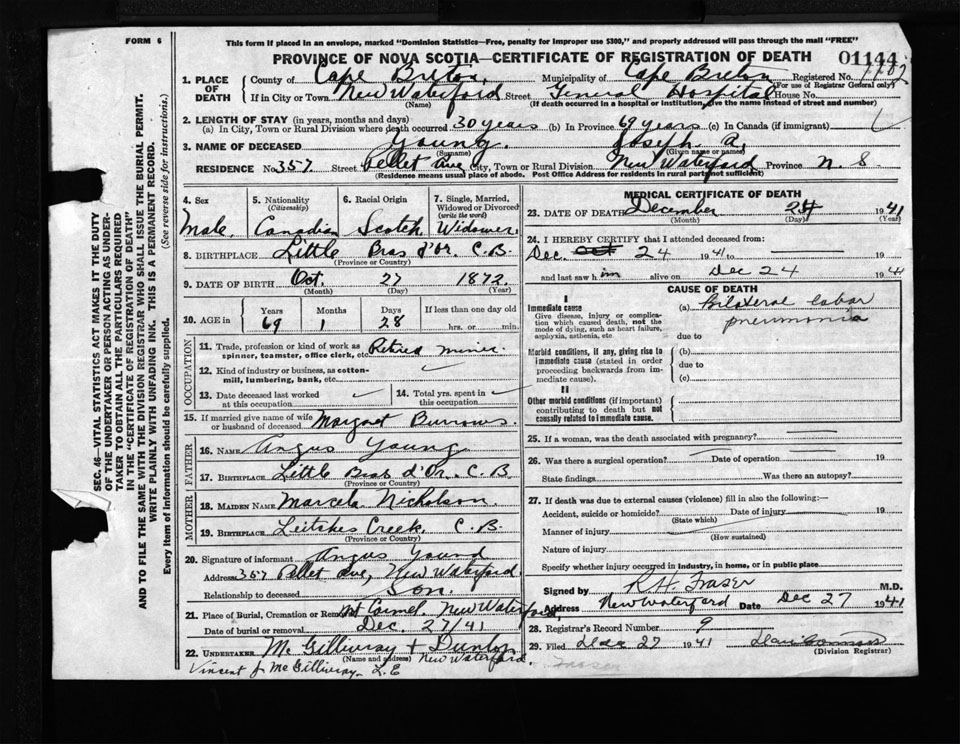 FORM 6
This form if placed in an envelope, marked "Dominion Statistics—Free, penalty for improper use $300," and properly addressed will pass through the mail "FREE"
PROVINCE OF NOVA SCOTIA—CERTIFICATE OF REGISTRATION OF DEATH
01144
SEC. 46—VITAL STATISTICS ACT MAKES IT THE DUTY
OF THE UNDERTAKER OR PERSON ACTING AS UNDER-
TAKER TO OBTAIN ALL THE PARTICULARS REQUIRED
IN THE "CERTIFICATE OF REGISTRATION OF DEATH"
AND TO FILE THE SAME WITH THE DIVISION REGISTRAR WHO SHALL ISSUE THE BURIAL PERMIT.
WRITE PLAINLY WITH UNFADING INK. THIS IS A PERMANENT RECORD.
Every item of information should be carefully supplied. (See reverse side for instructions.)
1. PLACE OF DEATH
County of Cape Breton Municipality of Cape Breton Registered No.
(For use of Registrar General only)
If in City or Town New Waterford Street General Hospital House No.
(Name) (If death occurred in a hospital or institution, give the name instead of street and number)
2. LENGTH OF STAY (in years, months and days)
(a) In City, Town or Rural Division where death occurred 30 years (b) In Province 69 years (c) In Canada (if immigrant)
3. NAME OF DECEASED Young. Joseph A.
(Surname) (Given name or names)
RESIDENCE No. 357 Street Pellet Ave City, Town or Rural Division New Waterford Province N S
(Residence means usual place of abode. Post Office Address for residents in rural parts not sufficient)
4. Sex
Male
5. Nationality
(Citizenship)
Canadian
6. Racial Origin
Scotch
7. Single, Married,
Widowed or Divorced
(write the word)
Widower
8. BIRTHPLACE Little Bras d'Or C.B.
(Province or Country)
9. DATE OF BIRTH Oct. 27 1872
(Month) (Day) (Year)
10. AGE in Years Months Days If less than one day old
69 1 28 hrs. or min.
OCCUPATION
11. Trade, profession or kind of work as
spinner, teamster, office clerk, etc. Retired miner
12. Kind of industry or business, as cotton-
mill, lumbering, bank, etc.
13. Date deceased last worked
at this occupation
14. Total yrs. spent in
this occupation
15. If married give name of wife
or husband of deceased Margaret Burrows.
FATHER
16. Name Angus Young
17. Birthplace Little Bras d'Or. C.B.
(Province or Country)
MOTHER
18. Maiden Name Marcela Nicholson
19. Birthplace Leitches Creek, C.B.
(Province or Country)
20. Signature of informant Angus Young
Address 357 Pellet Ave, New Waterford.
Relationship to deceased Son.
21. Place of Burial, Cremation or Removal Mt Carmel. New Waterford
Date of burial or removal Dec. 27/41
22. UNDERTAKER McGillivray + Dunlop
(Name and address) New Waterford.
Vincent J McGillivray L.E
MEDICAL CERTIFICATE OF DEATH
23. DATE OF DEATH December 24 1941
(Day) (Year)
24. I HEREBY CERTIFY that I attended deceased from:
Dec. 24 1941 to
and last saw him alive on Dec 24 1941
CAUSE OF DEATH
I
Immediate cause
Give disease, injury or complica-
tion which caused death, not the
mode of dying, such as heart failure,
asphyxia, asthenia, etc
(a) Bilateral lobar
pneumonia
due to
Morbid conditions, if any, giving rise to
immediate cause (stated in order
proceeding backwards from im-
mediate cause).
(b)
due to
(c)
II
Other morbid conditions (if important)
contributing to death but not
causally related to immediate cause.
25. If a woman, was the death associated with pregnancy?
26. Was there a surgical operation? Date of operation 19
State findings Was there an autopsy?
27. If death was due to external causes (violence) fill in also the following:—
Accident, suicide or homicide? Date of injury 19
(State which)
Manner of injury
(How sustained)
Nature of injury
Specify whether injury occurred in industry, in home, or in public place
Signed by R H Fraser M.D.
Address New Waterford Date Dec 27 1941
28. Registrar's Record Number 9
29. Filed Dec 27 1941
(Division Registrar)
Fraser